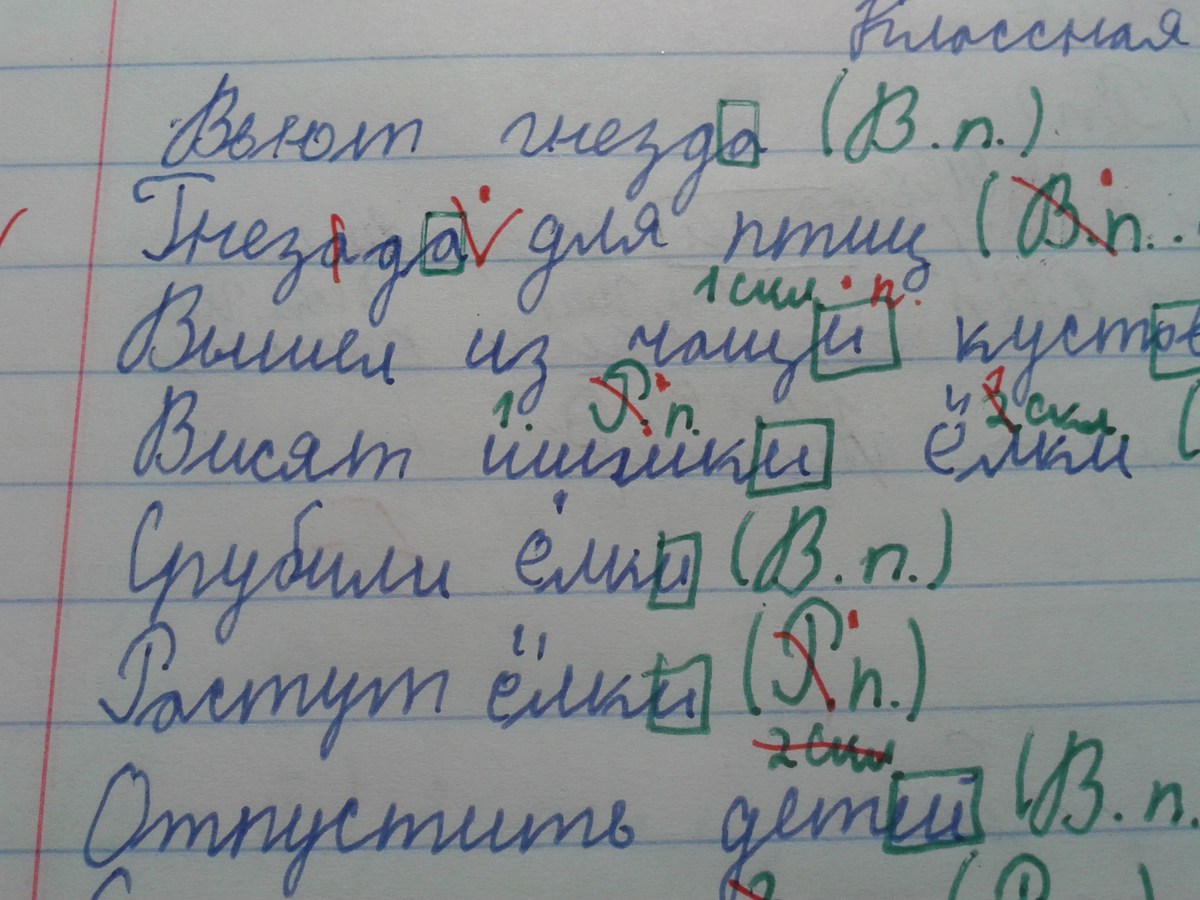 Классная
Вьют гнезда (В.п.)
Гнезда для птиц (В.п.
1 скл. п.
Вышел из чащи кустов
1. Р.п. 2 скл.
Висят шишки ёлки (
Срубили ёлки (В.п.)
Растут ёлки (Р.п.)
2 скл
Отпустить детей (В.п.